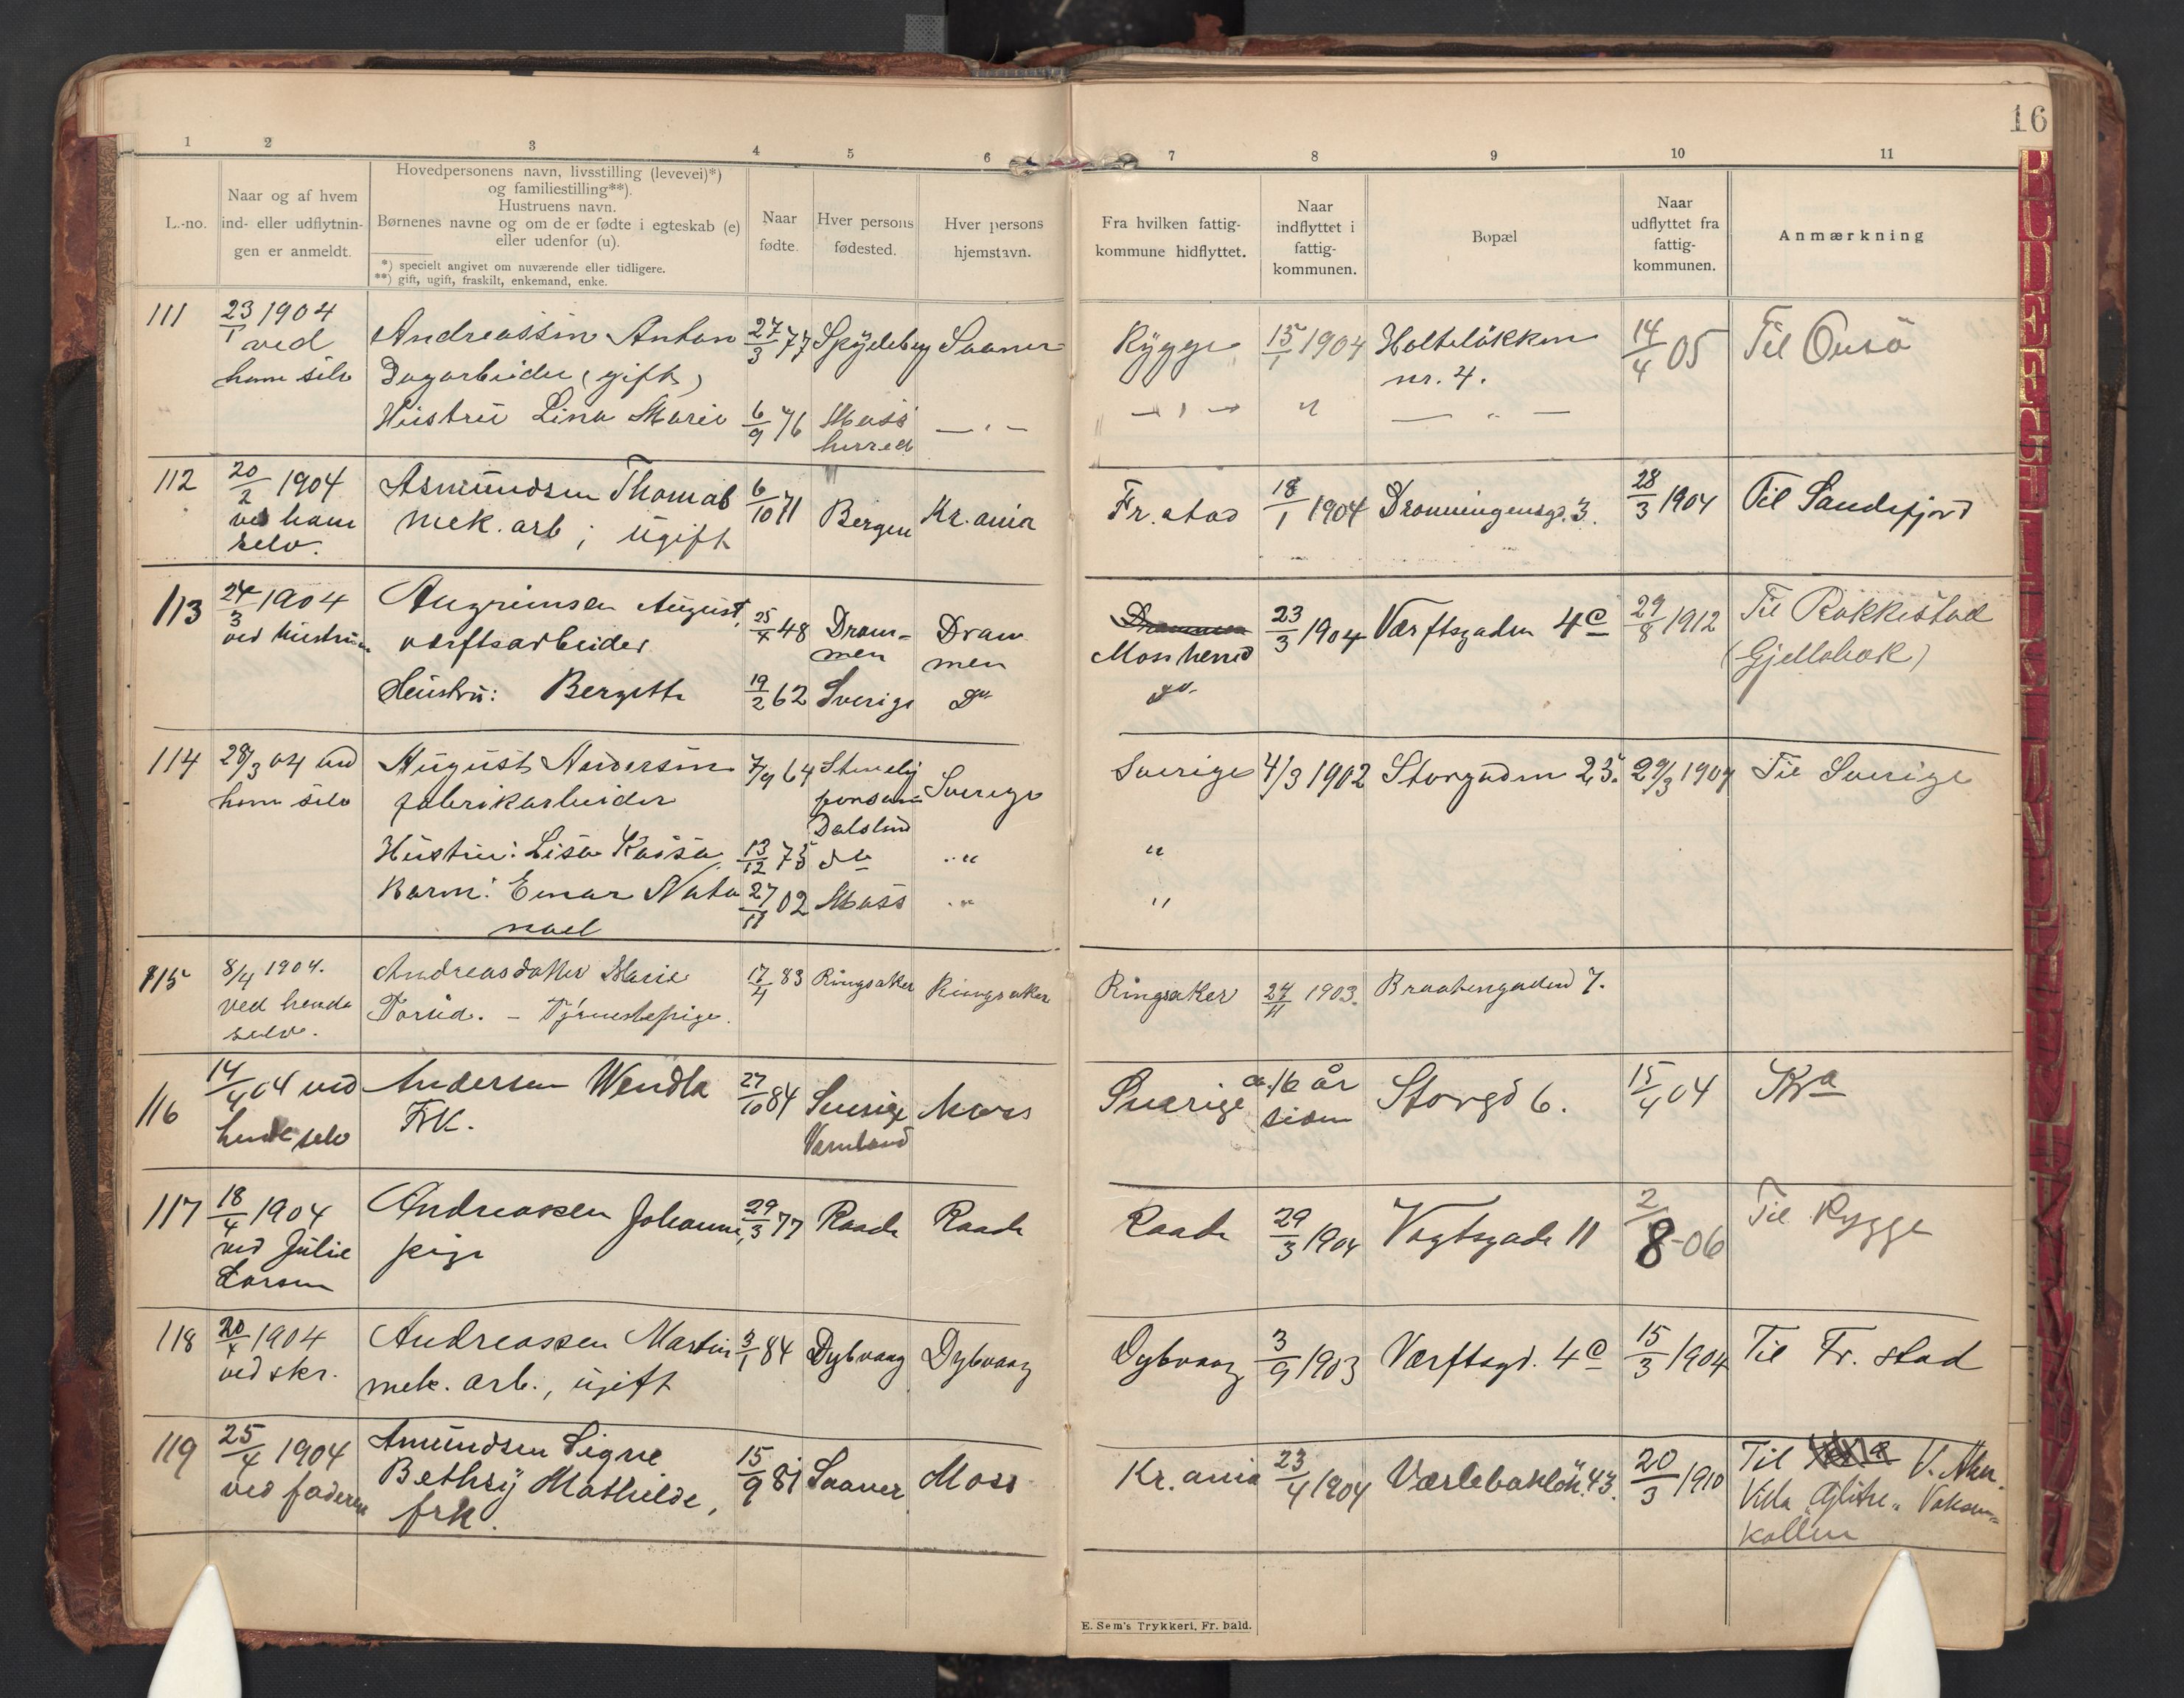 16
1 2 3 4 5 6 7 8 9 10 11
L.-no.
Naar og af hvem
ind- eller udflytnin-
gen er anmeldt.
Hovedpersonens navn, livsstilling (levevei)*)
og familiestilling**).
Hustruens navn.
Børnenes navne og om de er fødte i egteskab (e)
eller udenfor (u).
*) specielt angivet om nuværende eller tidligere.
**) gift, ugift, fraskilt, enkemand, enke.
Naar
fødte.
Hver persons
fødested.
Hver persons
hjemstavn.
Fra hvilken fattig-
kommune hidflyttet.
Naar
indflyttet i
fattig-
kommunen.
Bopæl
Naar
udflyttet fra
fattig-
kommunen.
Anmærkning
111 23/1 1904 Andreassen Anton 27/3 77 Spydeberg Saaner Rygge 15/1 1904 Holteløkken 14/4 05 Til Onsö
ved
ham selv Dagarbeider (gift) nr. 4.
Hustru Lina Marie 6/9 76 Moss — " — — " — " — " —
herred
112 20/2 1904 Asmundsen Thomas 6/10 71 Bergen Kr.ania Fr.stad 18/1 1904 Dronningensgd. 3. 28/3 1904 Til Sandefjord
ved ham mek. arb; ugift
selv.
113 24/3 1904 Angrimsen August, 25/4 48 Dram- Dram Drammen 23/3 1904 Værftsgaden 4c 29/8 1912 Til Rakkestad
ved hustruen værftsarbeider men men Moss herred (Gjellebæk)
Hustru: Bergitte 19/2 62 Sverige Do do
114 28/3 04 ved August Andersen 7/9 64 Sverige Sverige 4/3 1902 Storgaden 25. 29/3 1904 Til Sverige
ham selv fabrikarbeider
Dalsland
Hustru: Lisa Kaisa 13/12 75 do " "
Barn: Einar Nata 27/11 02 Moss " "
nael
115 8/4 1904. Andreasdatter Marie 17/4 83 Ringsaker Ringsaker Ringsaker 24/11 1903. Braatengaden 7.
ved hende Torud. - Tjenestepige.
selv.
116 14/4 04 ved Andersen Wendla 27/10 84 Sverige Moss Sverige ca. 16 år Storgd 6. 15/4 04 Kra
hende selv Frk. Värmland siden
117 18/4 1904 Andreassen Johanne, 29/3 77 Raade Raade Raade 29/3 1904 Vogtsgade 11 2/8-06 Til Rygge
ved Julie pige
Larsen
118 20/4 1904 Andreassen Martin 3/1 84 Dybvaag Dybvaag Dybvaag 3/9 1903 Værftsgd. 4c 15/3 1904 Til Fr. stad
ved skr. mek. arb., ugift
119 25/4 1904 Amundsen Signe 15/9 81 Saaner Moss Kr. ania 23/4 1904 Værlebakløk. 43. 20/3 1910 Til V. Aker.
ved faderen Bethsy Mathilde, Villa "Glitre" Voksen-
frk. kollen
E. Sem's Trykkeri, Fr. hald.